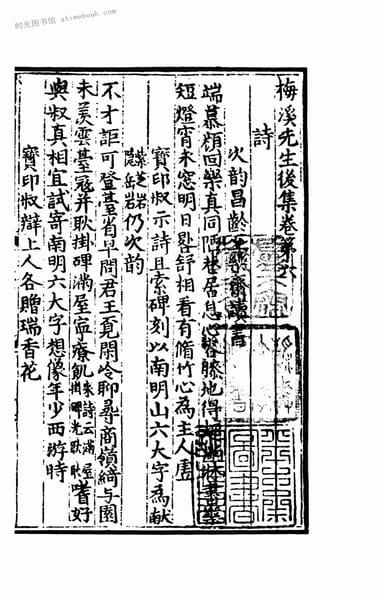 时光图书馆 atimebook.com
梅溪先生後集卷第六
詩
次韵昌齡齋讀書
端慕顔回樂真同陋巷居息心容膝地得牀書
短燈宵未窓明日晷舒相看有脩竹心為主人虛
寶印叔示詩且索碑刻以南明山六大字為獻
仍次韵
不才詎可登臺省早問君王覓閑冷聊尋商嶺綺與園
未羨雲臺寇并耿掛碑滿屋寧療飢朱詩云滿屋掛碑光耿耿嗜好
與叔真相宜試寄南明六大字想像年少西游時
寶印叔辯上人各贈瑞香花